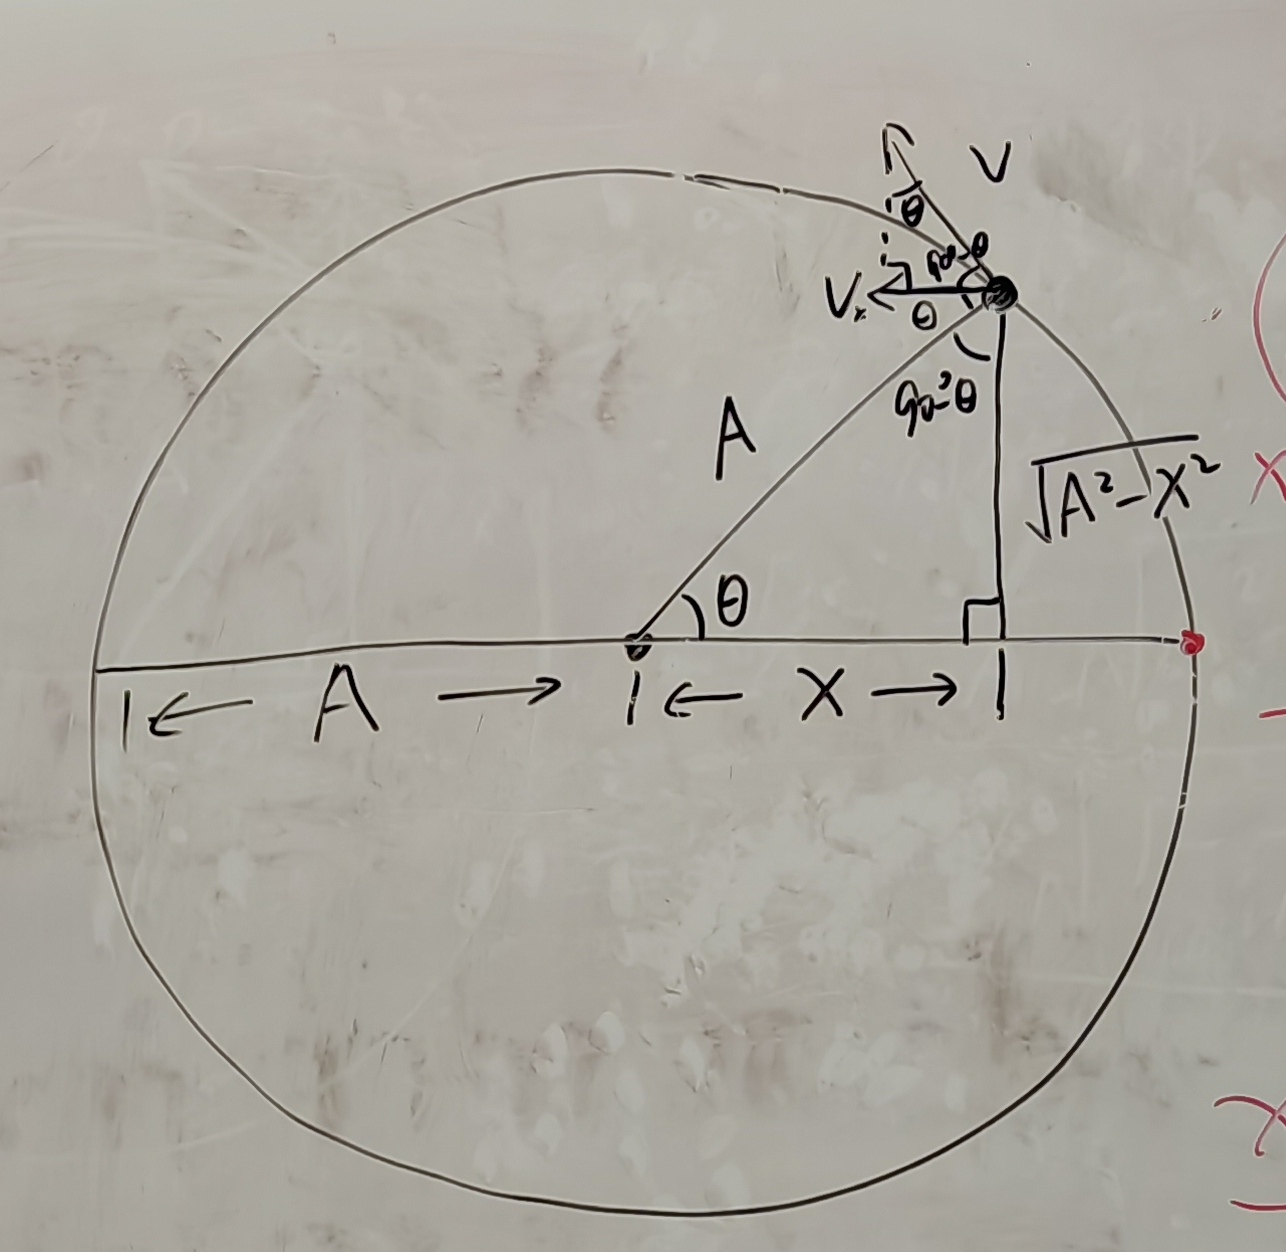 V
θ
90-θ
Vx
θ
90°-θ
A
√A²-X²
θ
|← A →|← X →|